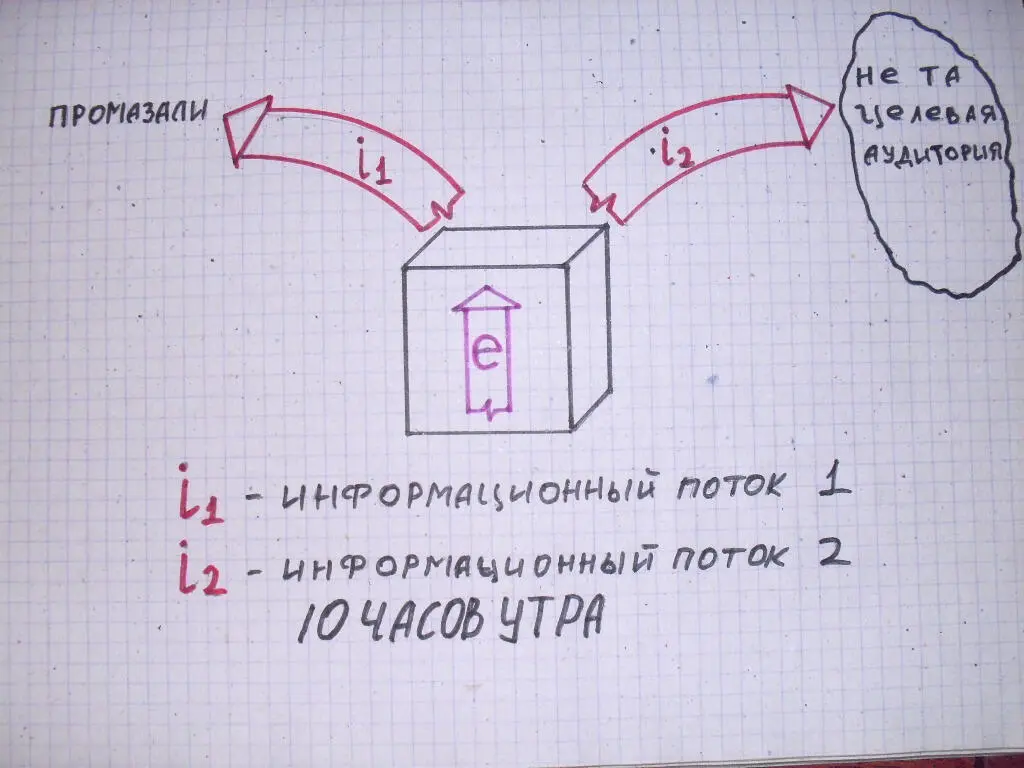 ПРОМАЗАЛИ
i1
i2
Не ТА
ЦеЛеВАЯ
АУДИТОРИЯ
e
i1 - ИНФОРМАЦИОННЫЙ ПОТОК 1
i2 - ИНФОРМАЦИОННЫЙ ПОТОК 2
10 ЧАСОВ УТРА